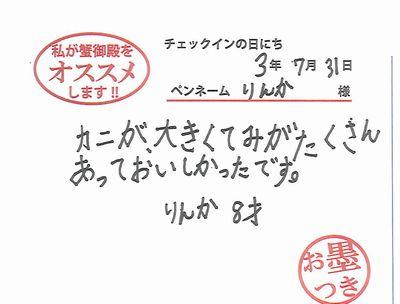 私が蟹御殿を
オススメ
します!!
チェックインの日にち
3年 7月 31日
ペンネーム りんか 様
カニが、大きくてみがたくさん
あっておいしかったです。
りんか 8才
お墨
つき